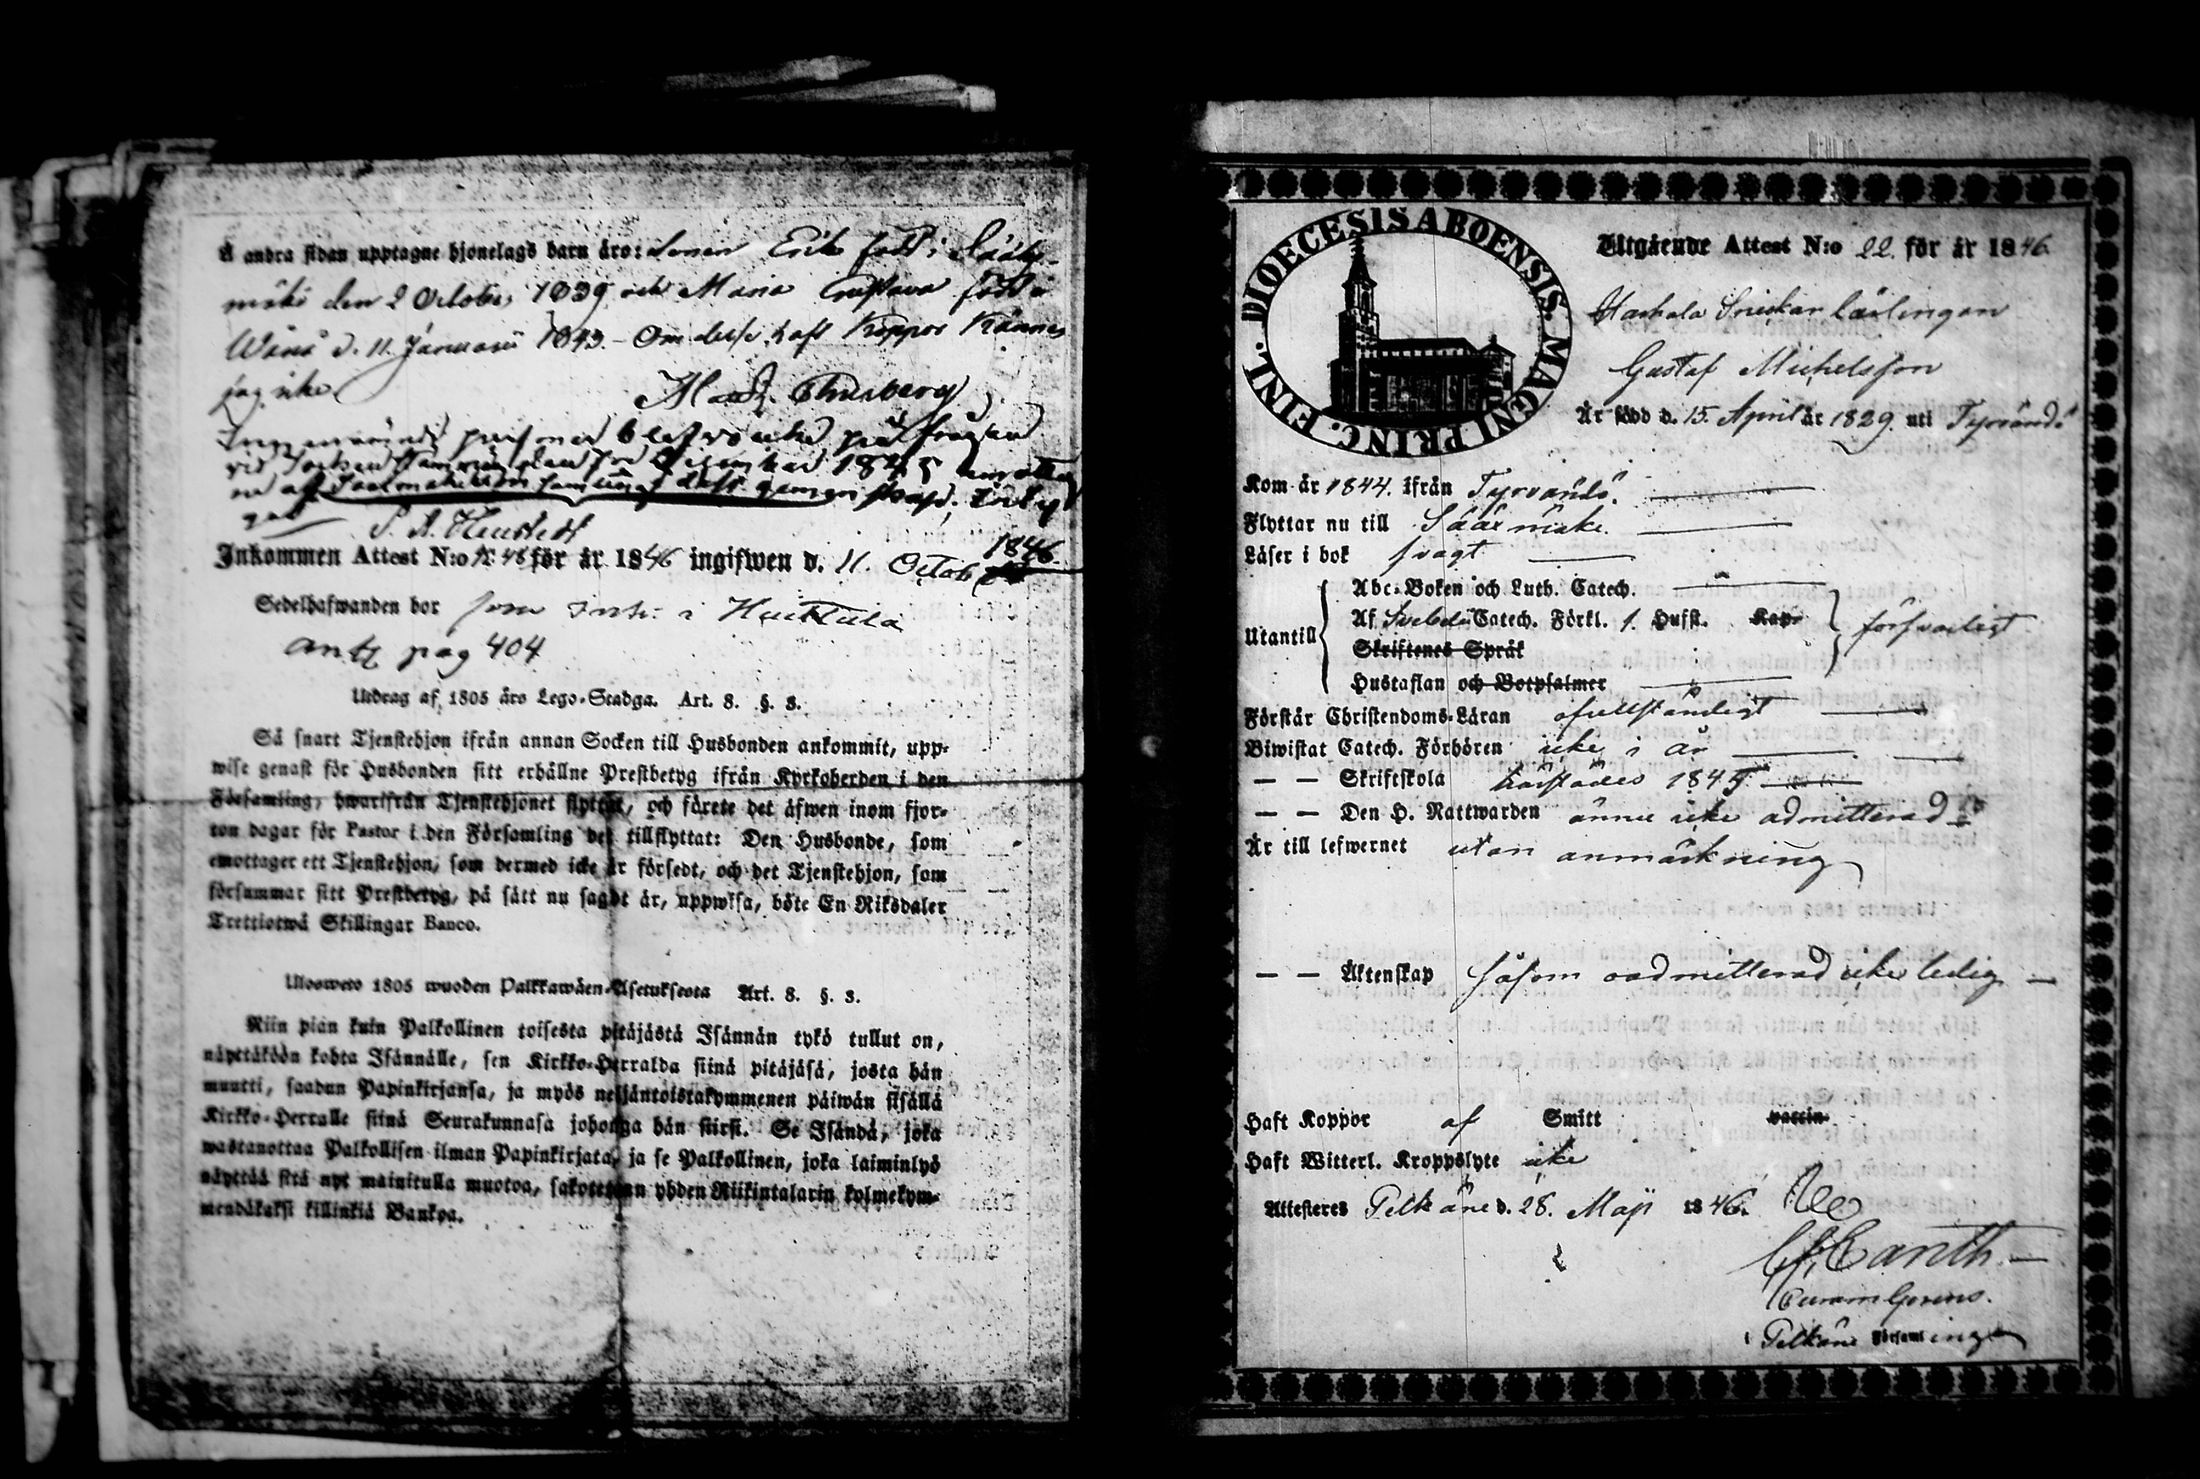 Å andra sidan upptagne hjonelags barn äro: Sonen Erik född i Sääx-
mäki den 2 October 1839 och Maria Gustava född i
Wånå d. 11 Januarii 1843. – Om desse haft Koppor Känner
jag icke
personer blefvo icke på
vid Sockenstämman December 1845
S. A.
Inkommen Attest N:o 48 för år 1846 ingifwen d. 11. Octob 1846.
Sedelhafwanden bor som i Huittula
ant pag 404
Utdrag af 1805 års Lego-Stadga. Art. 8. §. 3.
Så snart Tjenstehjon ifrån annan Socken till Husbonden ankommit, upp-
wise genast för Husbonden sitt erhållne Prestbetyg ifrån Kyrkoherden i den
Församling, hwarifrån Tjenstehjonet flyttat, och förete det äfwen inom fjor-
ton dagar för Pastor i den Församling det tillflyttat: Den Husbonde, som
emottager ett Tjenstehjon, som dermed icke är försedt, och det Tjenstehjon, som
försummar sitt Prestbetyg, på sätt nu sagdt är, uppwisa, böte En Riksdaler
Trettiotwå Skillingar Banco.
Ulosweto 1805 wuoden Palkkawäen-Asetuksesta Art. 8. §. 3.
Niin pian kuin Palkollinen toisesta pitäjästä Isännän tykö tullut on,
näyttäköön kohta Isännälle, sen Kirkko-Herralda siinä pitäjäsä, josta hän
muutti, saadun Papinkirjansa, ja myös neljäntoistakymmenen päiwän sisällä
Kirkko-Herralle siinä Seurakunnasa johonga hän siirsi. Se Isändä, joka
wastanottaa Palkollisen ilman Papinkirjata, ja se Palkollinen, joka laiminlyö
näyttää sitä nyt mainitulla muotoa, sakotetaan yhden Riikintalarin kolmekym-
mendäkaksi killinkiä Bankoa.
DIOECESIS ABOENSIS. MAGNI PRINC. FINL.
Utgående Attest N:o 22. för år 1846.
Harhala Snickar lärlingen
Gustaf Michelsson
Är född d. 15. April år 1829. uti Tyrvändö
Kom år 1844. ifrån Tyrvändö.
Flyttar nu till Sääxmäki.
Läser i bok svagt
Utantill
Abc-Boken och Luth. Catech.
Af Svebelii Catech. Förkl. 1. Hufst. Kap.
Skriftenes Språk
Hustaflan och Botpsalmer
försvarligt
Förstår Christendoms-Läran ofullständigt
Biwistat Catech. Förhören icke i år
— — Skriftskola härstädes 1845.
— — Den H. Nattwarden ännu icke admitterad
Är till lefwernet utan anmärkning
— — Äktenskap såsom oadmitterad icke ledig —
Haft Koppor af Smitt vaccin
Haft Witterl. Kroppslyte icke
Attesteres Pelkäne d. 28. Maji 1846.
Canth
Curam Gerens.
i Pelkäne Församling